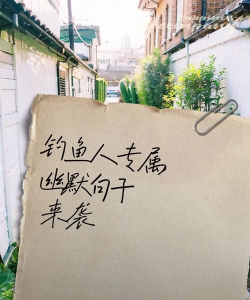 钓鱼人专属
幽默句子
来袭